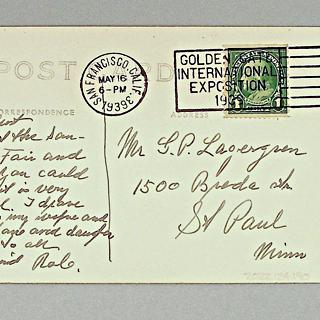 POST CARD
SAN FRANCISCO, CALIF.
MAY 16
6-PM
1939
GOLDEN GATE
INTERNATIONAL
EXPOSITION
19
1
CORRESPONDENCE
ADDRESS
the San
Fair and
you could
it is very
my wife and
and daughter
to all
Mr G.P. Lavergren
1500 Breda St.
St Paul
Minn